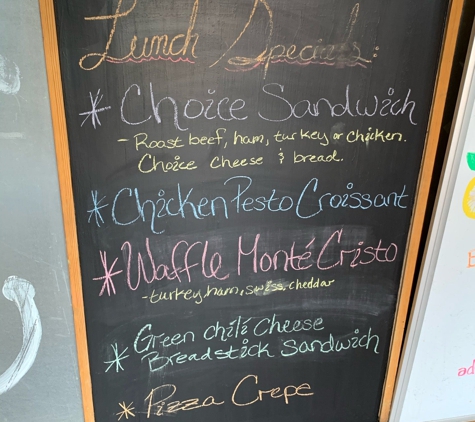 Lunch Specials:
* Choice Sandwich
- Roast beef, ham, turkey or chicken.
Choice cheese & bread.
* Chicken Pesto Croissant
* Waffle Monté Cristo
- turkey, ham, swiss, cheddar
* Green Chili Cheese
Breadstick Sandwich
* Pizza Crepe